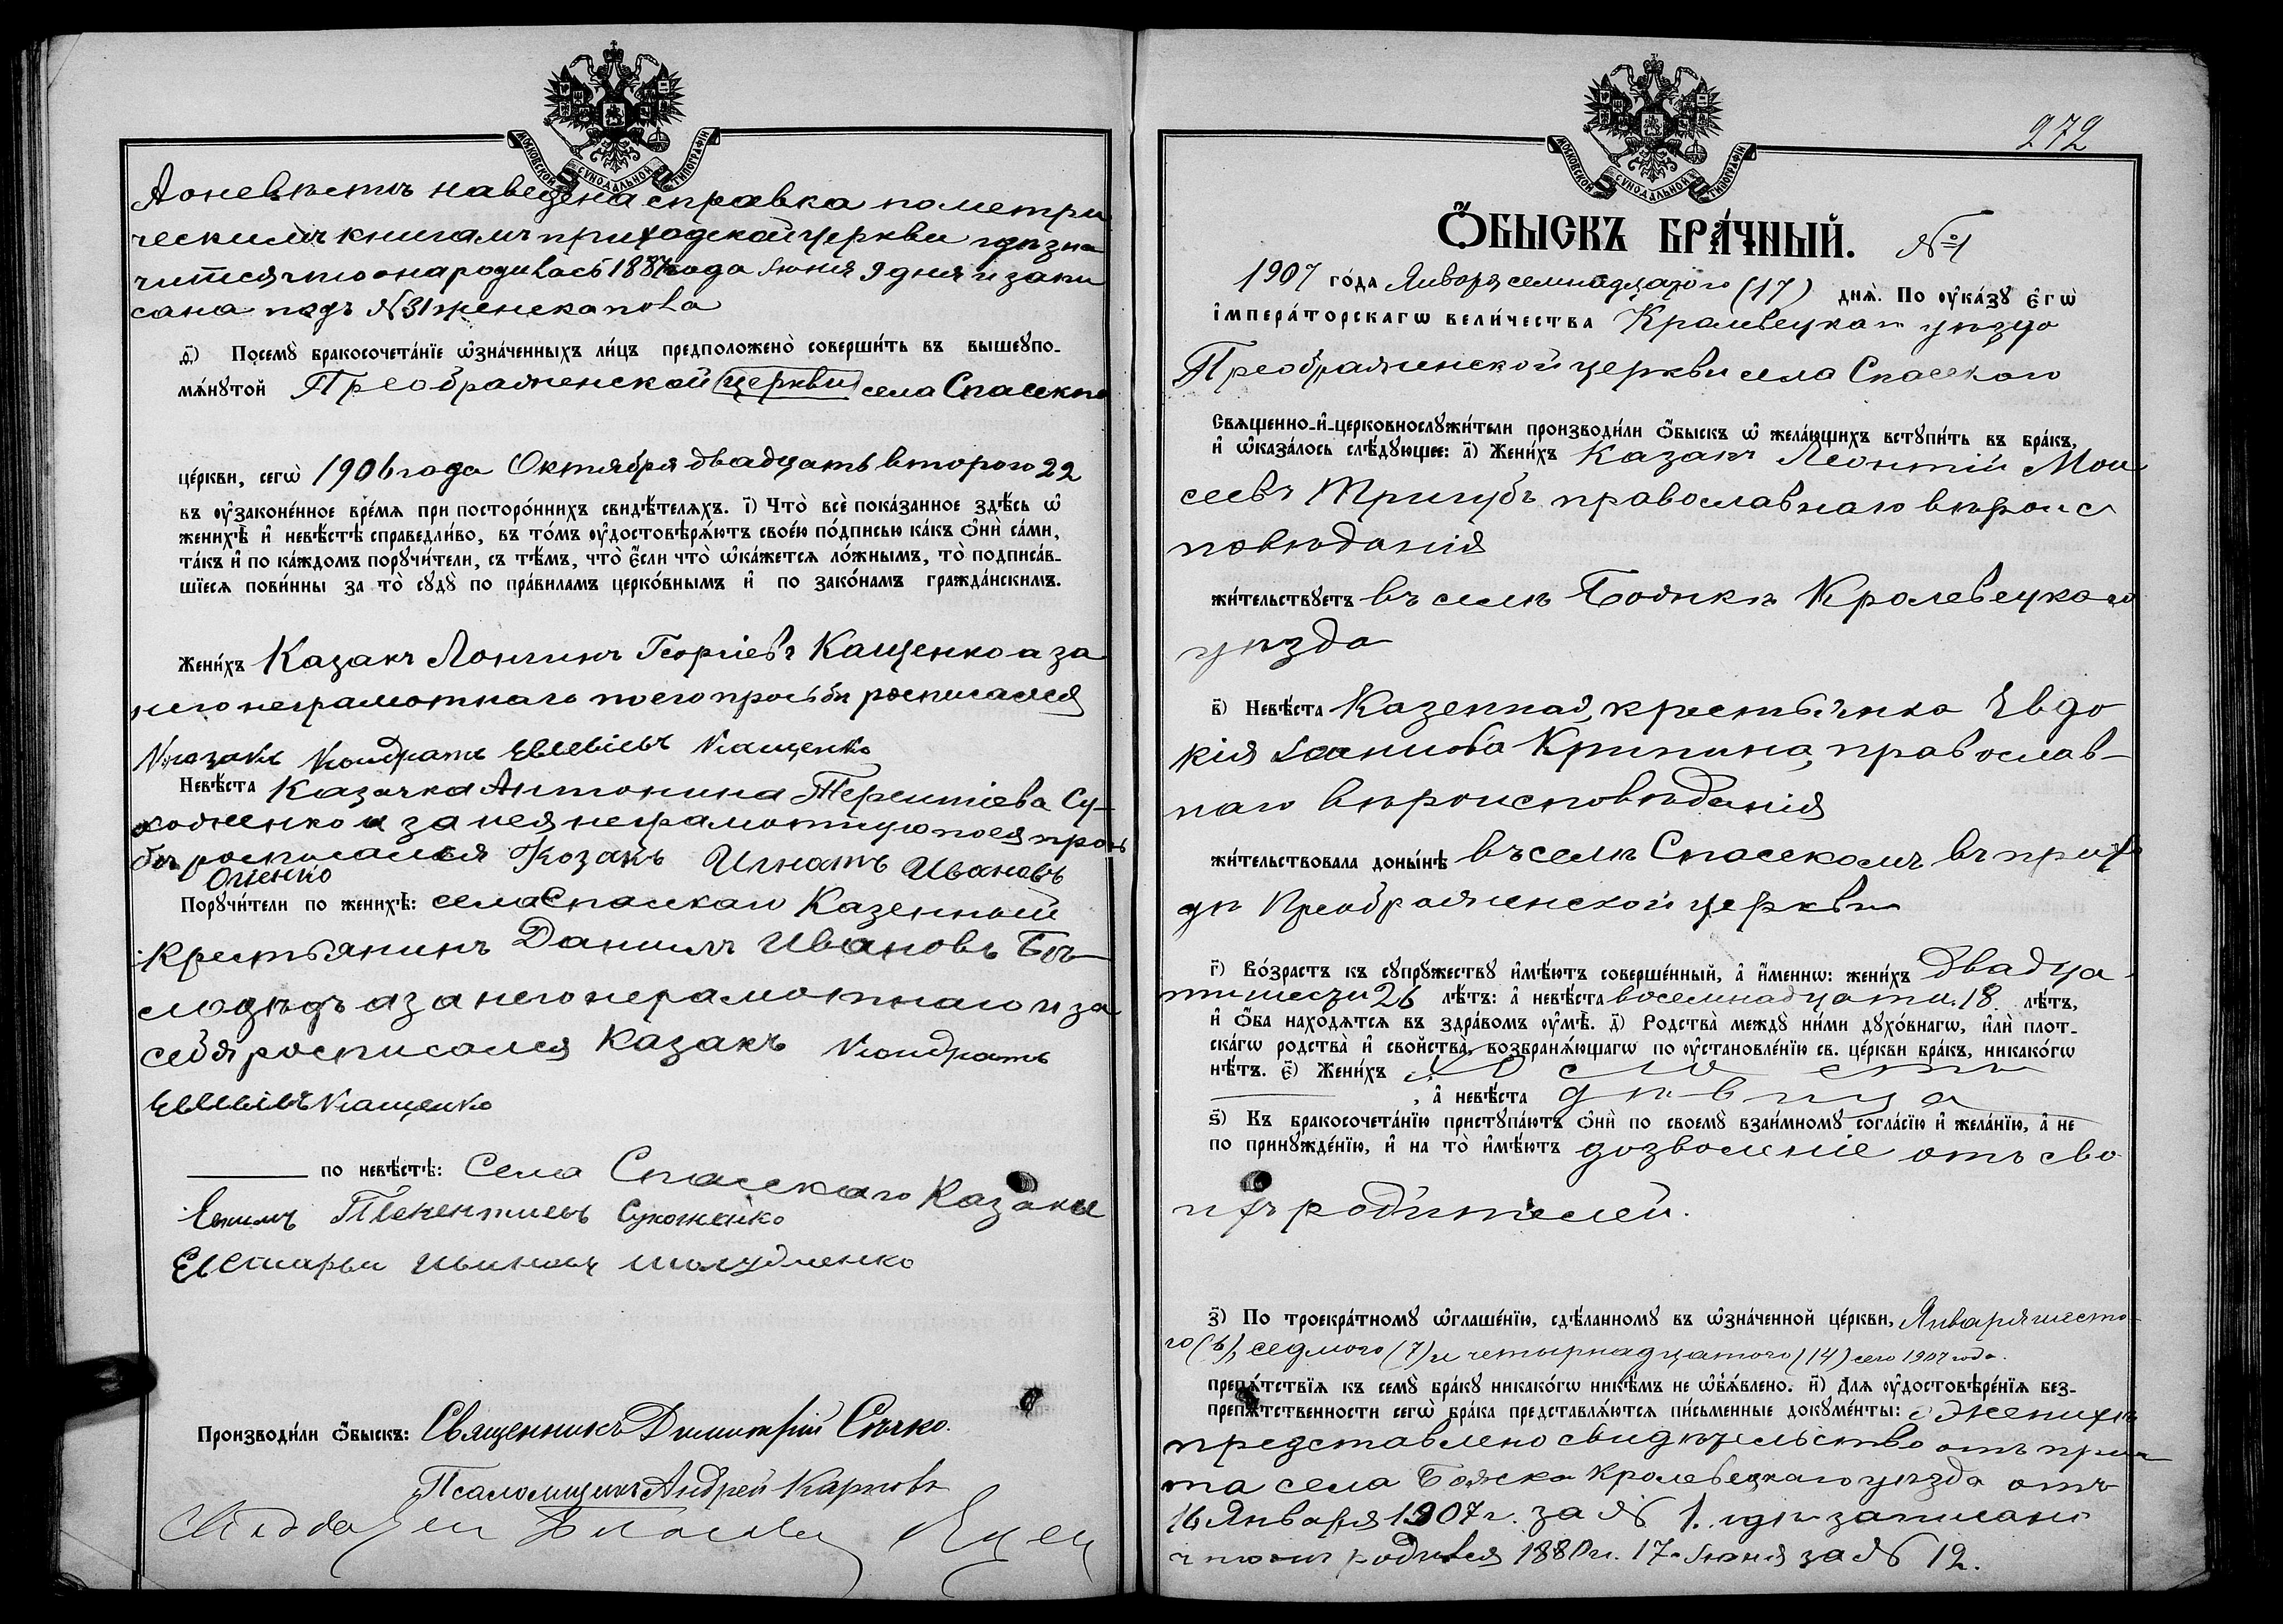 МОСКОВСКОЙ СѴНОДАЛЬНОЙ ТИПОГРАФІИ
А о невѣстѣ наведена справка по метри
ческимъ книгамъ приходской церкви гдѣ зна
чится что она родилась 1887 года Іюня 9 дня и запи
сана подъ №31 женска пола
д҃) Посемꙋ̀ бракосочета́нїе ѡ҆зна́ченныхъ ли́цъ предположено̀ соверши́ть въ вышеꙋпо-
мѧ́нꙋтой Преображенской церкви села Спаскаго
це́ркви, сегѡ̀ 1906 года Октября двадцать второго 22
въ ᲂу҆зако́ненное вре́мѧ при посторо́ннихъ свидѣ́телѧхъ. і҃) Что̀ всѐ пока́занное здѣ́сь ѡ҆
женихѣ̀ и҆ невѣ́стѣ справедли́во, въ то́мъ ᲂу҆достовѣрѧ́ютъ свое́ю по́дписью ка́къ ѻ҆нѝ са́ми,
та́къ и҆ по ка́ждомъ порꙋчи́тели, съ тѣ́мъ, что̀ є҆́сли что̀ ѡ҆ка́жетсѧ ло́жнымъ, то̀ подписа́в-
шїесѧ пови́нны за то̀ сꙋдꙋ̀ по пра́виламъ церко́внымъ и҆ по зако́намъ гражда́нскимъ.
Жени́хъ Казакъ Лонгинъ Георгіевъ Кащенко а за
него неграмотнаго по его просьбѣ росписался
Козакъ Кондратъ Кащенко
Невѣ́ста Казачка Антонина Терентіева Су-
хоженко а за нея неграмотную по ея прось
бѣ росписался Козакъ Игнатъ Ивановъ
Порꙋчи́тели по женихѣ̀: села Спаскаго Казенный
Крестьянинъ Даніилъ Ивановъ Бѣ-
а за него неграмотнаго и за
себя росписался Казакъ Кондратъ
Кащенко
по невѣ́стѣ: Села Спаскаго Казаки
Сухоженко
Производи́ли ѻ҆́быскъ: Священникъ Димитрій Сѣчко.
Псаломщикъ Андрей Карповъ
272
МОСКОВСКОЙ СѴНОДАЛЬНОЙ ТИПОГРАФІИ
Ѻ҆́БЫСКЪ БРА́ЧНЫЙ. №1
1907 го́да Января семнадцатого (17) днѧ̀. По ᲂу҆ка́зꙋ є҆гѡ̀
і҆мпера́торскагѡ вели́чества Кролевецкаго уѣзда
Преображенской церкви села Спаскаго
Свѧщенно-и҆-церковнослꙋжи́тели производи́ли ѻ҆́быскъ ѡ҆ жела́ющихъ встꙋпи́ть въ бра́къ,
и҆ ѡ҆каза́лось слѣ́дꙋющее: а҃) Жени́хъ Казакъ Леонтій Мои
сеевъ Тригубъ православнаго вѣроис
повѣданія
жи́тельствꙋетъ въ селѣ Божкѣ Кролевецкаго
уѣзда
в҃) Невѣ́ста Казенная крестьянка Евдо
кія Іоаннова Крипина, православ-
наго вѣроисповѣданія
жи́тельствовала доны́нѣ въ селѣ Спаскомъ въ прихо
дѣ Преображенской церкви
г҃) Во́зрастъ къ сꙋпрꙋ́жествꙋ и҆мѣ́ютъ соверше́нный, а҆ и҆́меннѡ: жени́хъ двадца-
ти шести 26 лѣ́тъ: а҆ невѣ́ста восемнадцати 18 лѣ́тъ,
и҆ ѻ҆́ба нахо́дѧтсѧ въ здра́вомъ ᲂу҆мѣ̀. д҃) Родства̀ междꙋ̀ ни́ми дꙋхо́внагѡ, и҆лѝ плот-
ска́гѡ родства̀ и҆ свойства̀, возбранѧ́ющагѡ по ᲂу҆становле́нїю св. це́ркви бра́къ, никако́гѡ
нѣ́тъ. є҃) Жени́хъ холостъ
, а҆ невѣ́ста дѣвица
ѕ҃) Къ бракосочета́нїю пристꙋпа́ютъ ѻ҆нѝ по своемꙋ̀ взаи́мномꙋ согла́сїю и҆ жела́нїю, а҆ не
по принꙋжде́нїю, и҆ на то̀ и҆мѣ́ютъ дозволеніе отъ сво
ихъ родителей.
з҃) По троекра́тномꙋ ѡ҆глаше́нїю, сдѣ́ланномꙋ въ ѡ҆зна́ченной це́ркви, Января шесто-
го (6), седмого (7) и четырнадцатого (14) сего 1907 года.
препѧ́тствїѧ къ семꙋ̀ бра́кꙋ никако́гѡ никѣ́мъ не ѡ҆б̾ѧ́влено. и҃) Длѧ ᲂу҆достовѣре́нїѧ без-
препѧ́тственности сегѡ̀ бра́ка представлѧ́ютсѧ пи́сьменные докꙋме́нты: о женихѣ
представлено свидѣтельство отъ прич
та села Божка Кролевецкаго уѣзда отъ
16 Января 1907 г. за № 1. гдѣ записано
что онъ родился 1880 г. 17 Іюня за № 12.